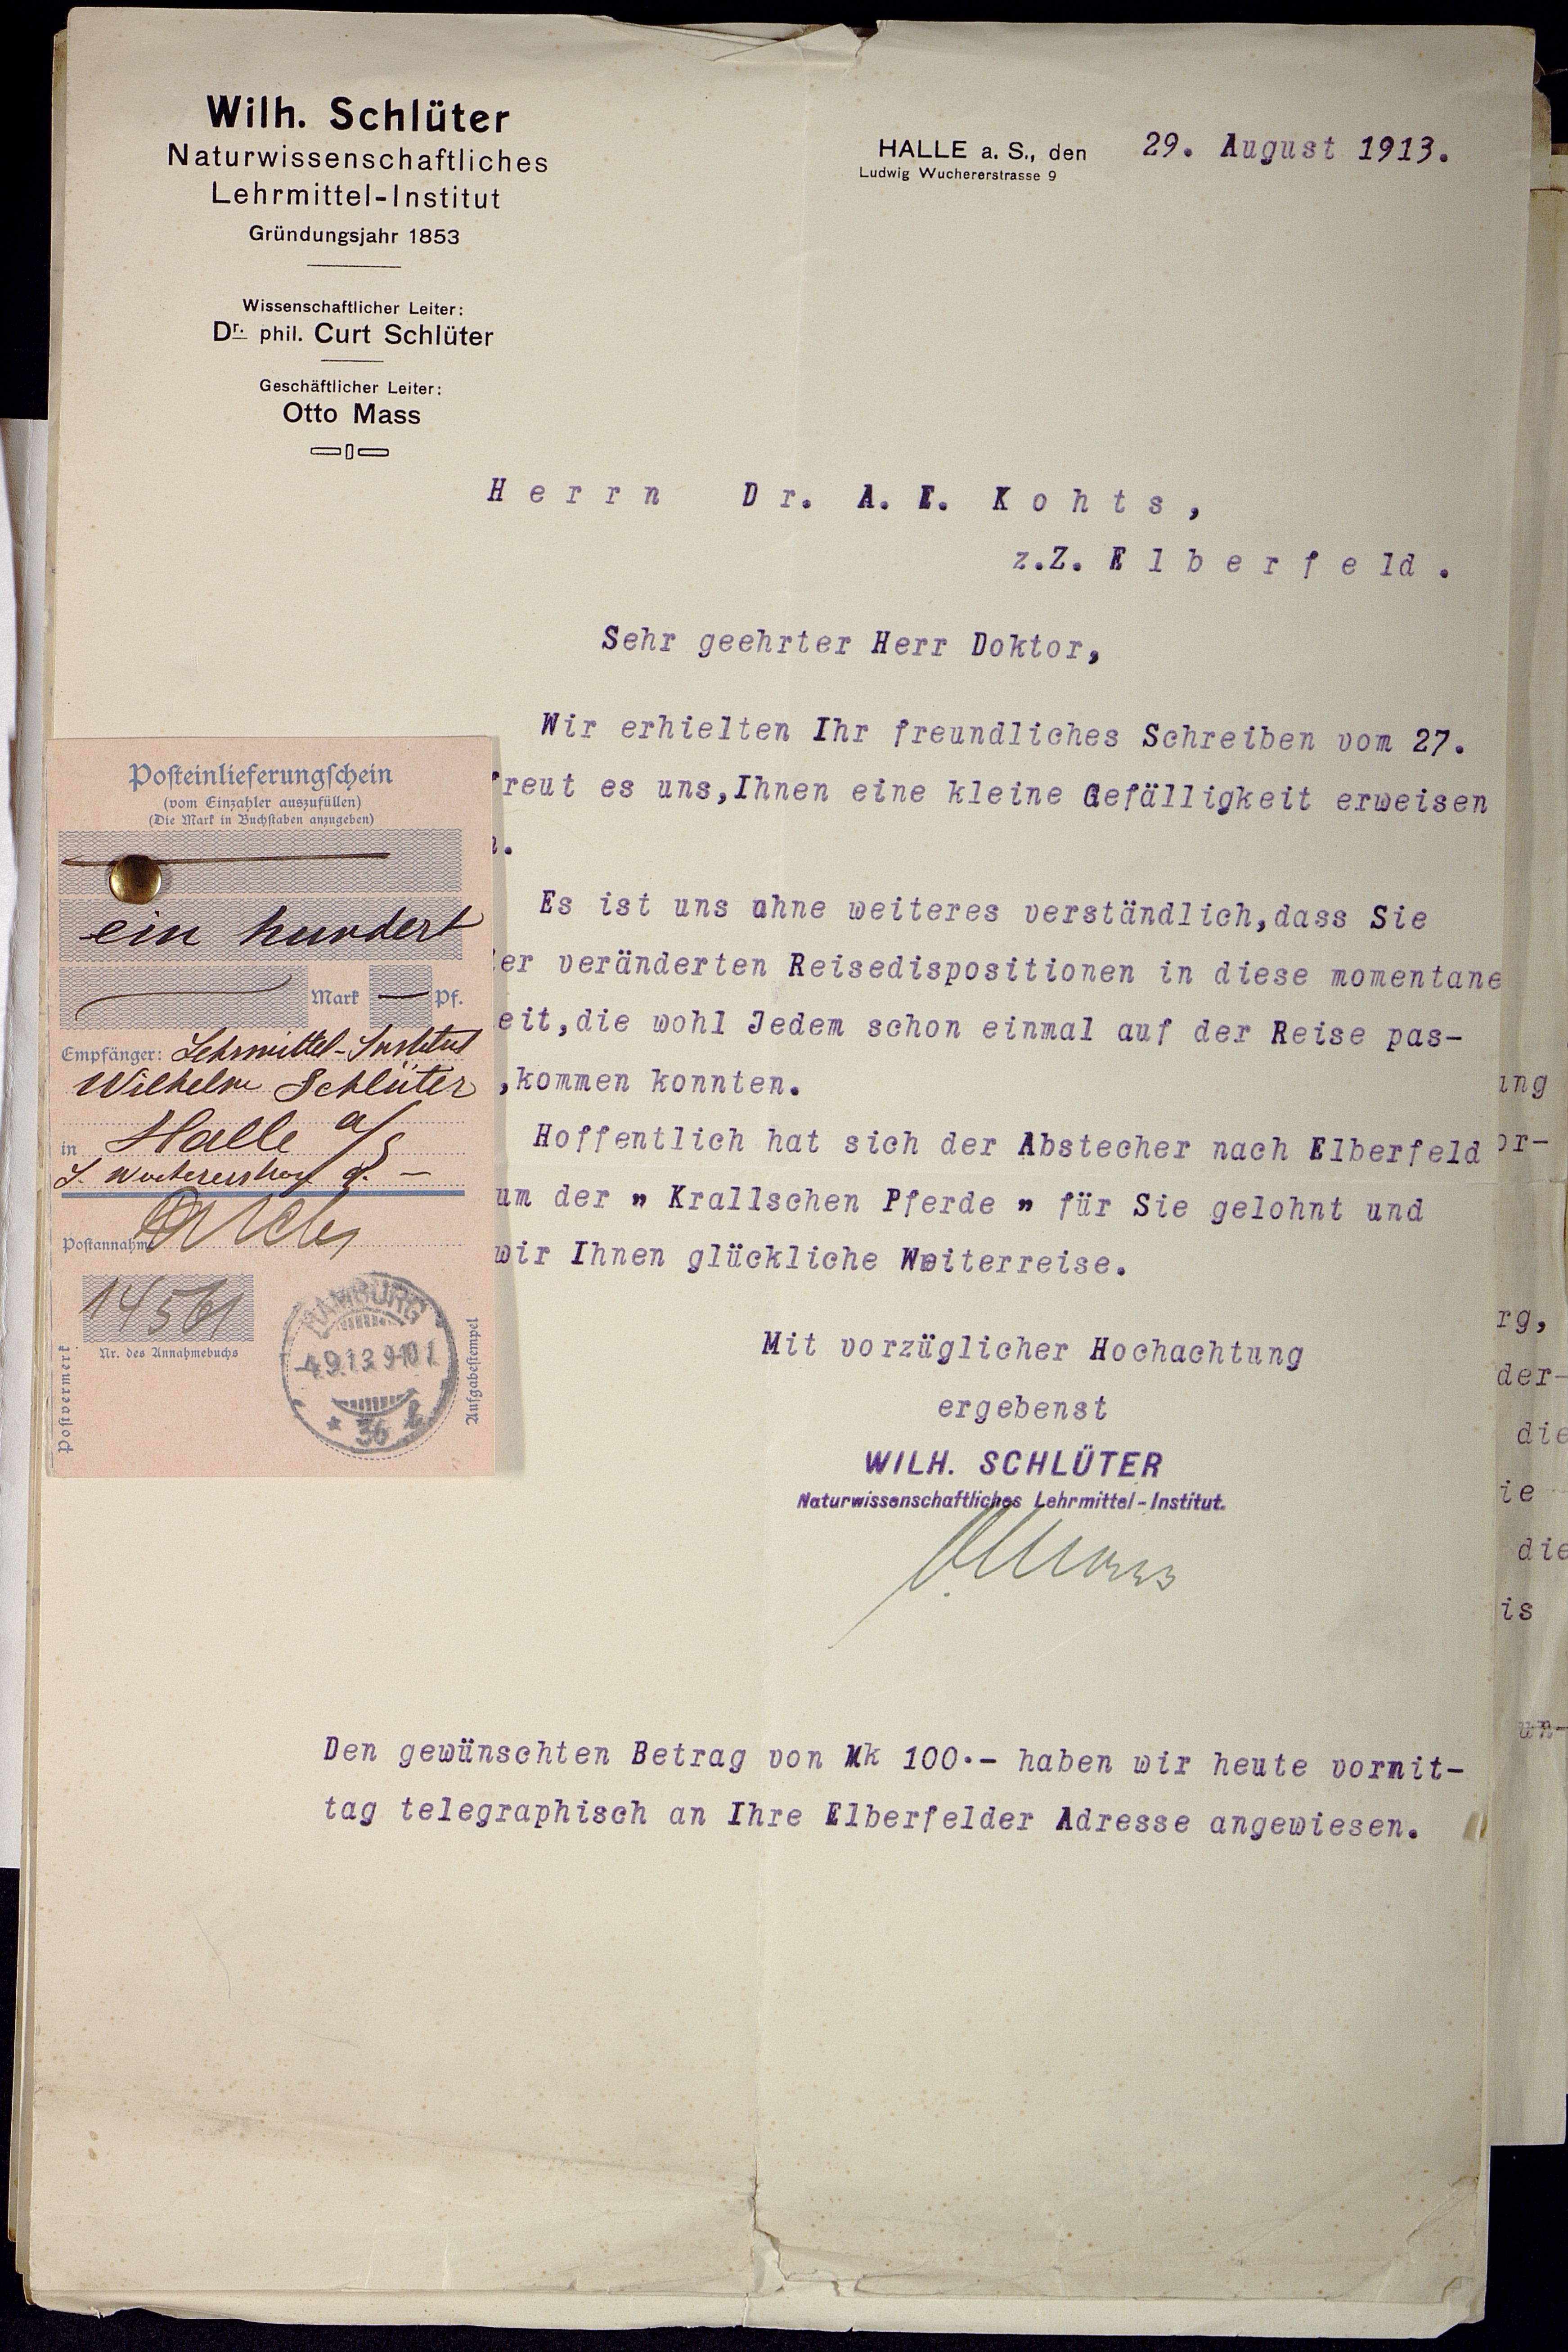 Wilh. Schlüter
Naturwissenschaftliches
Lehrmittel-Institut
Gründungsjahr 1853
Wissenschaftlicher Leiter:
Dr. phil. Curt Schlüter
Geschäftlicher Leiter:
Otto Mass
HALLE a. S., den 29. August 1913.
Ludwig Wuchererstrasse 9
Herrn Dr. A. E. Kohts,
z.Z. Elberfeld.
Sehr geehrter Herr Doktor,
Wir erhielten Ihr freundliches Schreiben vom 27.
reut es uns,Ihnen eine kleine Gefälligkeit erweisen
.
Es ist uns ohne weiteres verständlich,dass Sie
er veränderten Reisedispositionen in diese momentane
eit,die wohl Jedem schon einmal auf der Reise pas-
,kommen konnten.
Hoffentlich hat sich der Abstecher nach Elberfeld
um der „ Krallschen Pferde „ für Sie gelohnt und
wir Ihnen glückliche Weiterreise.
Mit vorzüglicher Hochachtung
ergebenst
WILH. SCHLÜTER
Naturwissenschaftliches Lehrmittel-Institut.
Den gewünschten Betrag von Mk 100.- haben wir heute vormit-
tag telegraphisch an Ihre Elberfelder Adresse angewiesen.
Posteinlieferungschein
(vom Einzahler auszufüllen)
(Die Mark in Buchstaben anzugeben)
ein hundert
Mark — Pf.
Empfänger: Lehrmittel-Institut
Wilhelm Schlüter
in Halle a/S
9. —
Postannahme
14561
Nr. des Annahmebuchs
Postvermerk
HAMBURG
4.9.13 9-10
* 36
Aufgabestempel
ung
or-
rg,
der-
die
ie
die
is
un-